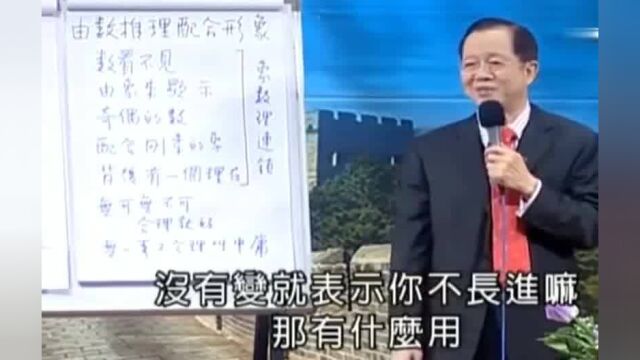 由數推理配合形象
數看不見
由象來顯示
奇偶的數
配合剛柔的象
背後有一個理在
象數理連鎖
無可無不可
合理就好
沒有變就表示你不長進嘛
那有什麼用